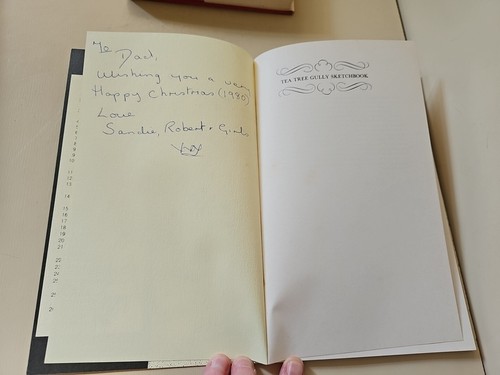 To
Dad,
Wishing you a very
Happy Christmas (1980)
Love
Sandra, Robert + Girls
TEA TREE GULLY SKETCHBOOK